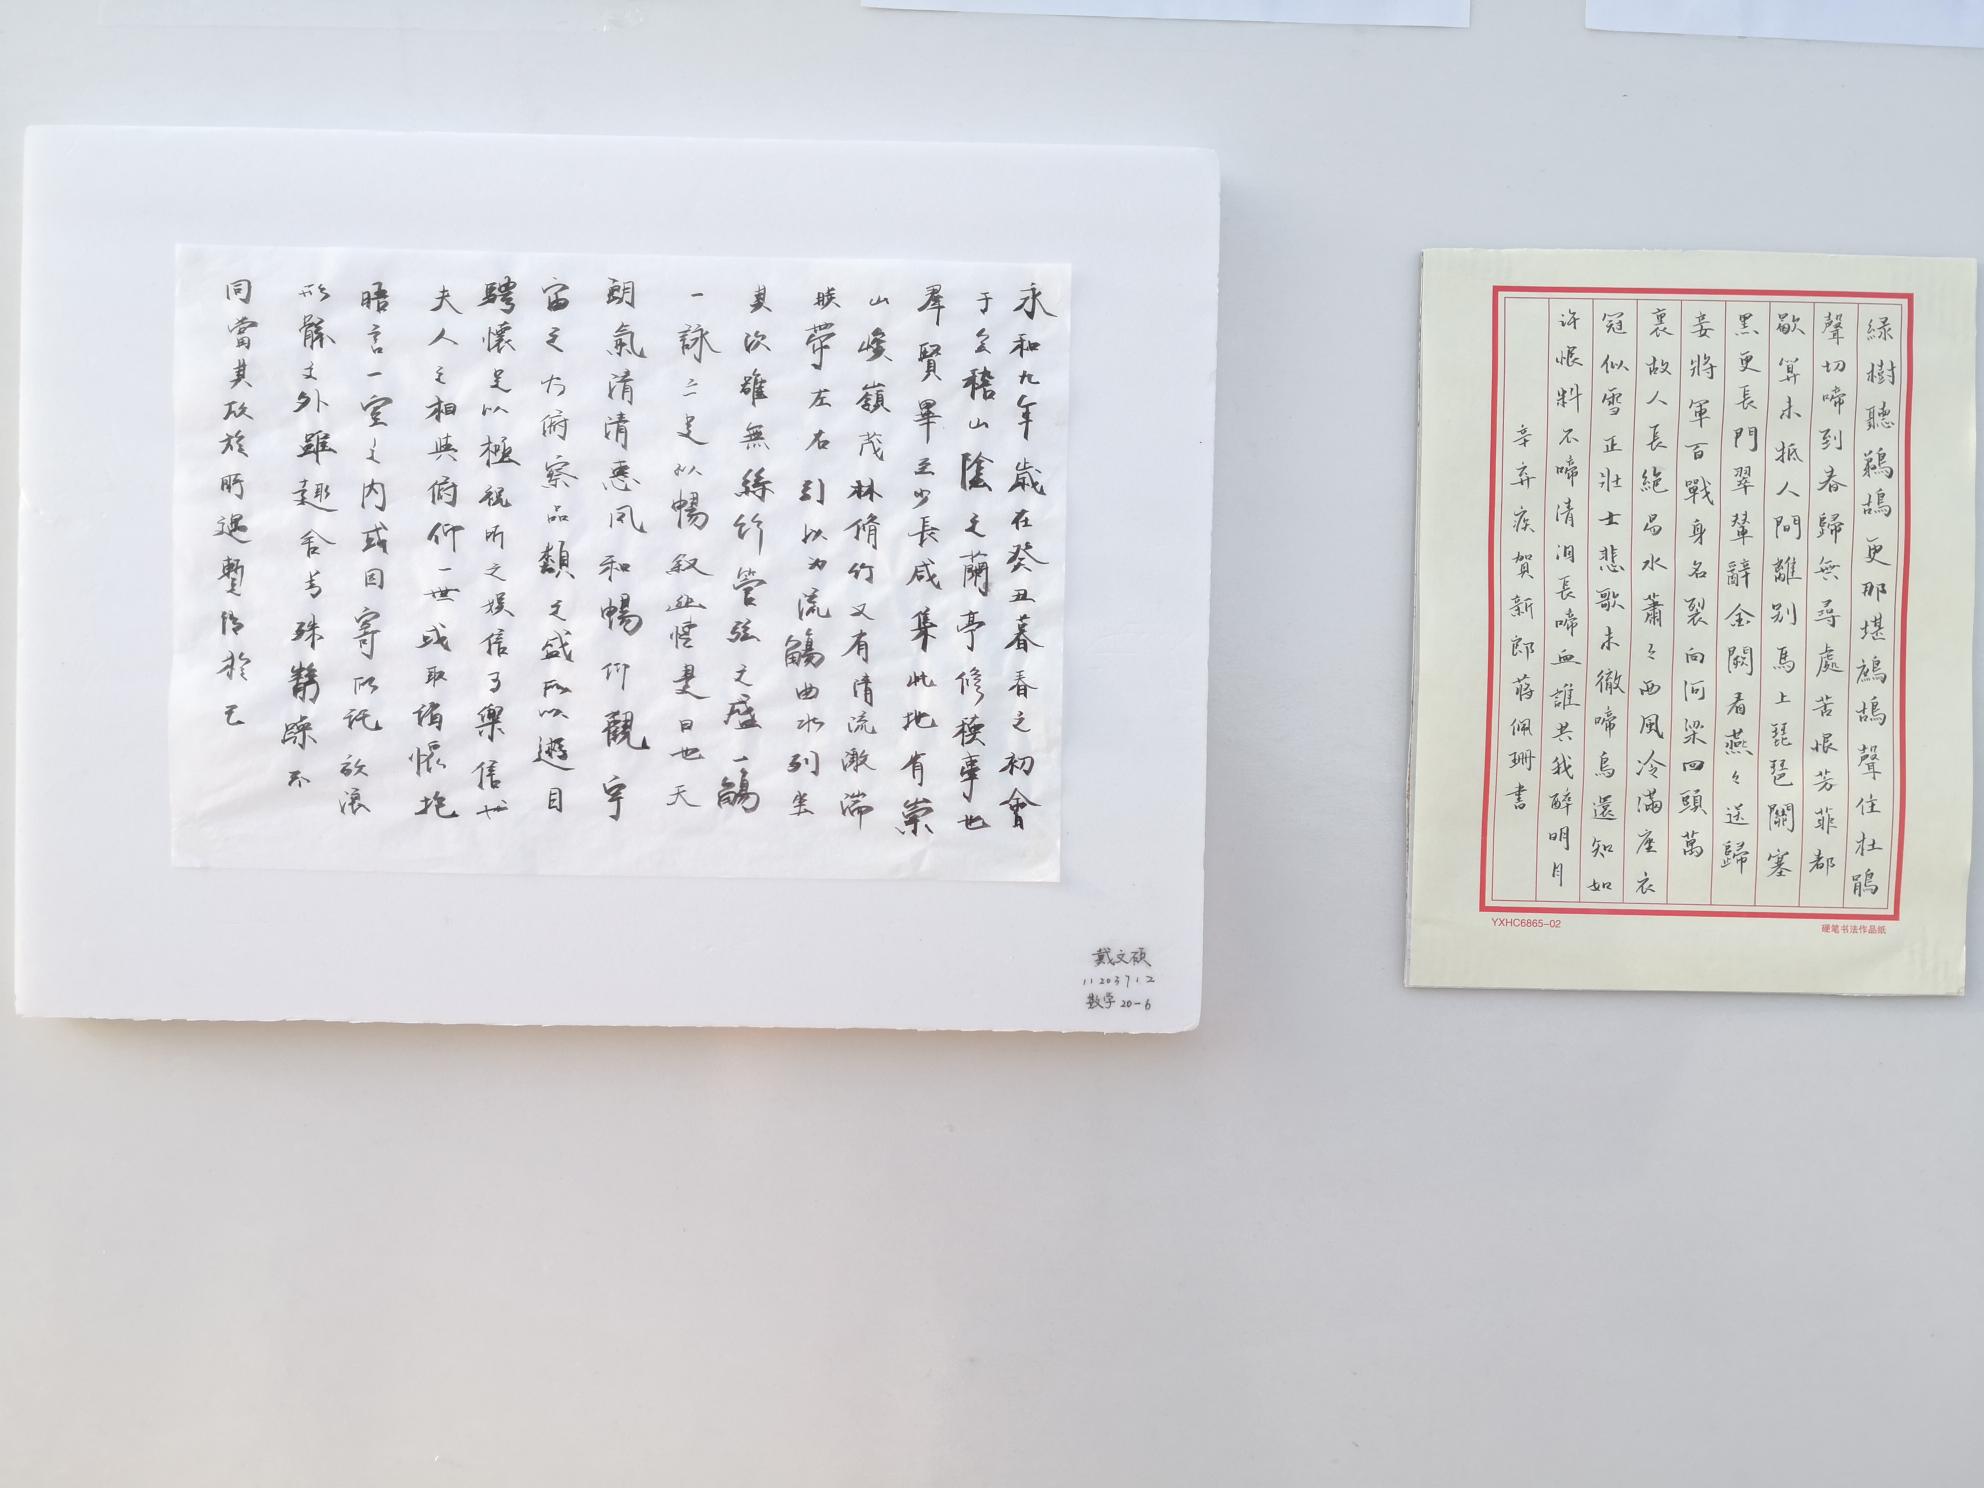 永和九年歲在癸丑暮春之初會
于會稽山陰之蘭亭修稧事也
羣賢畢至少長咸集此地有崇
山峻嶺茂林脩竹又有清流激湍
暎帶左右引以為流觴曲水列坐
其次雖無絲竹管弦之盛一觴
一詠二足以暢叙幽情是日也天
朗氣清清惠風和暢仰觀宇
宙之大俯察品類之盛所以遊目
騁懷足以極視聽之娛信可樂信也
夫人之相與俯仰一世或取諸懷抱
晤言一室之内或因寄所託放浪
形骸之外雖趣舍萬殊静躁不
同當其欣於所遇暫得於己
戴文硕
11203712
数学20-6
緑樹聽鵜鴂更那堪鷓鴣聲住杜鵑
聲切啼到春歸無尋處苦恨芳菲都
歇算未抵人間離别馬上琵琶關塞
黑更長門翠輦辭金闕看燕々送歸
妾將軍百戰身名裂向河梁回頭萬
裏故人長絶易水蕭々西風冷滿座衣
冠似雪正壯士悲歌未徹啼鳥還知如
許恨料不啼清淚長啼血誰共我醉明月
辛弃疾賀新郎蔣佩珊書
YXHC6865-02
硬笔书法作品纸